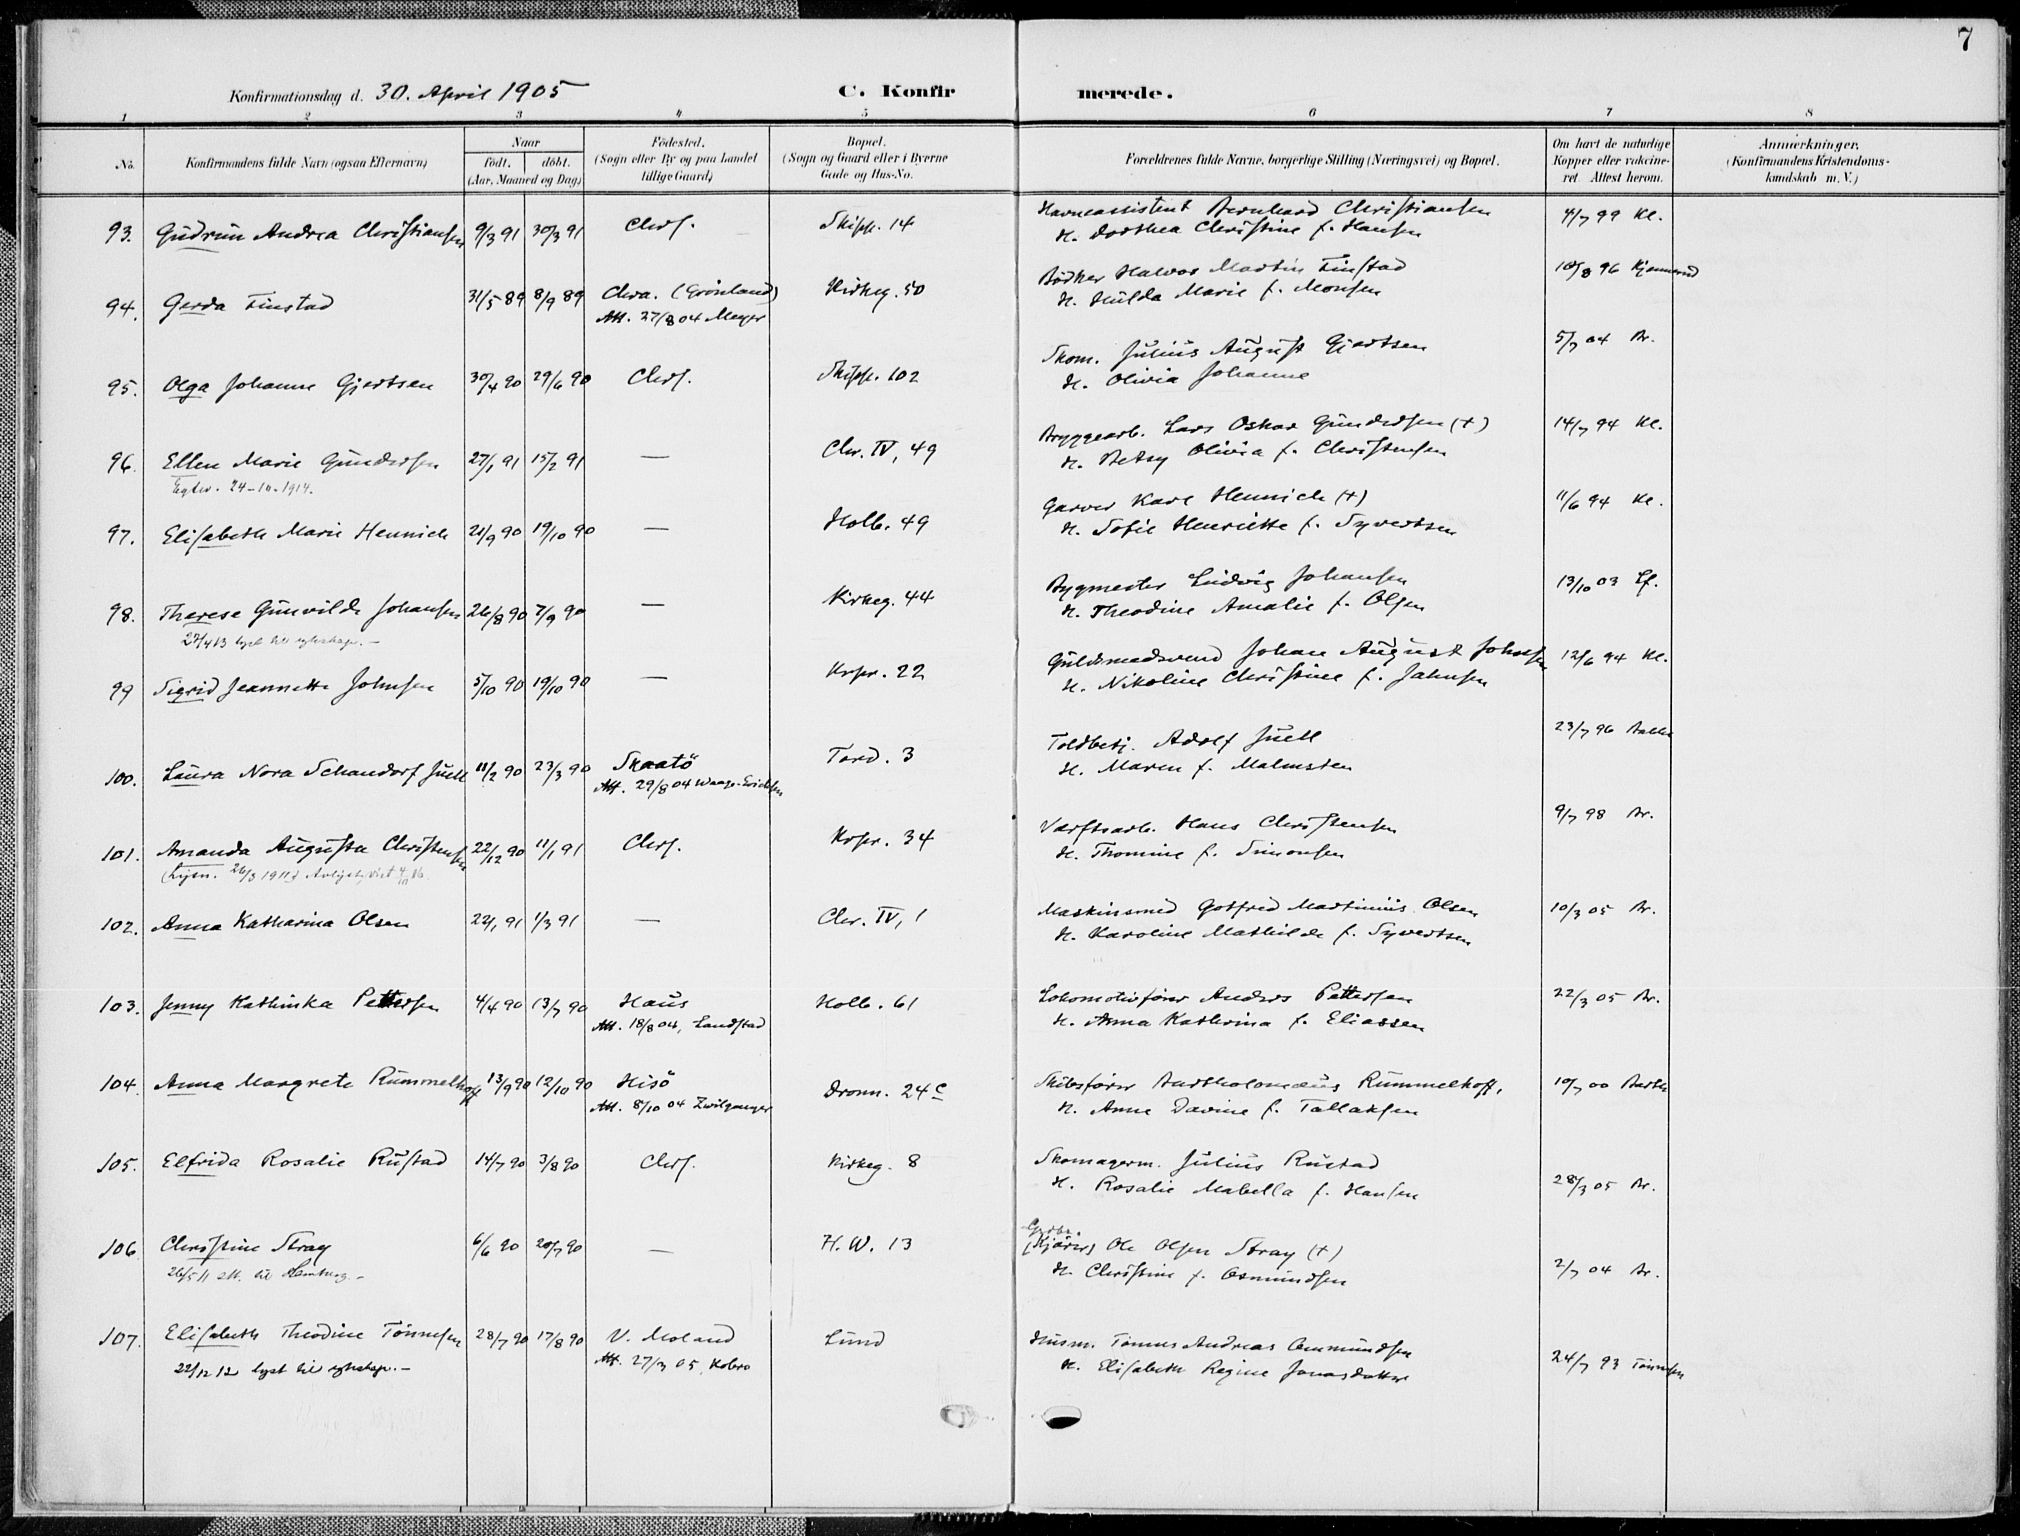 7
Konfirmationsdag d. 30. April 1905 C. Konfirmerede.
1 2 3 4 5 6 7 8
No. Konfirmandens fulde Navn (ogsaa Efternavn) Naar födt. döbt. (Aar, Maaned og Dag) Födested. (Sogn eller By og paa Landet tillige Gaard) Bopæl. (Sogn og Gaard eller i Byerne Gade og Hus-No. Forældrenes fulde Navne, borgerlige Stilling (Næringsvei) og Bopæl. Om havt de naturlige Kopper eller vakcineret. Attest herom. Anmærkninger. (Konfirmandens Kristendomskundskab m. V.)
93. Gudrun Andrea Christiansen 9/3 91 30/3 91 Chrs. Skipp. 14 Havneassistent Bernhard Christiansen 4/7 99 Kl.
H. Dorthea Christine f. Hansen
94. Gerda Finstad 31/5 89 8/9 89 Chra. (Grönland) Kirkeg. 50 Bödker Halvor Martin Finstad 10/8 96 Kjennerud
Att. 27/8 04 Meyer H. Hulda Marie f. Monsen
95. Olga Johanne Gjertsen 30/4 90 29/6 90 Chrs. Skipp. 102 Skom. Julius August Gjertsen 5/7 04 Br.
H. Olivia Johanne
96. Ellen Marie Gundersen 27/1 91 15/2 91 — Chr. IV, 49 Bryggearb. Lars Oskar Gundersen (+) 14/7 94 Kl.
24-10-1914. H. Betsy Olivia f. Christensen
97. Elisabeth Marie Hennich 21/9 90 19/10 90 — Holb. 49 Garver Karl Hennich (+) 11/6 94 Kl.
H. Sofie Henriette f. Syvertsen
98. Therese Gunvilde Johansen 26/8 90 7/9 90 — Kirkeg. 44 Bygmester Ludvig Johansen 13/10 03 Lf.
27/4 13 lyst til egteskap.- H. Theodine Amalie f. Olsen
99 Sigrid Jeannette Johnsen 5/10 90 19/10 90 — Krpr. 22 Guldsmedsvend Johan August Johnsen 12/6 94 Kl.
H. Nikoline Christine f. Jahnsen
100. Laura Nora Schandorf Juell 11/2 90 23/3 90 Skaatö Tord. 3 Toldbetj. Adolf Juell 23/7 96
Att. 29/8 04 H. Maren f. Malmsten
101. Amanda Augusta Christensen 22/12 90 11/1 91 Chrs. Krpr. 34 Værftsarb. Hans Christensen 9/7 98 Br.
26/3 1911 H. Thomine f. Simonsen
102. Anna Katharina Olsen 22/1 91 1/3 91 — Chr. IV, 1 Maskinsmed Gotfred Martinius Olsen 10/3 05 Br.
H. Karoline Mathilde f. Syvertsen
103. Jenny Kathinka Pettersen 4/4 90 13/7 90 Haus Holb. 61 Lokomotivförer Anders Pettersen 22/3 05 Br.
Att. 18/8 04, Landstad H. Anna Katherina f. Eliassen
104. Anna Margrete Rummelhoff 13/9 90 12/10 90 Hisö Dronn. 24 c Skibsförer Bartholomæus Rummelhoff, 10/7 00 Barth
Att. 8/10 04 Zwilgmeyer H. Anne Davine f. Tallaksen
105. Elfrida Rosalie Rustad 14/7 90 3/8 90 Chrs. Kirkeg. 8 Skomagerm. Julius Rustad
H. Rosalie Mabella f. Hansen 28/3 05 Br.
106 Christine Stray 6/6 90 20/7 90 — H. W. 13 (Skjörer) Ole Olsen Stray (+)
26/5 11 att. til Hamburg.- H. Christine f. Osmundsen 2/7 04 Br.
107. Elisabeth Theodine Tönnesen 28/7 90 17/8 90 V. Moland Lund Husm. Tönnes Andreas Ommundsen
22/12 12 lyst til egteskap.- Att. 27/3 05, Kobro H. Elisabeth Regine Jonasdatter 24/7 93 Tönnesen